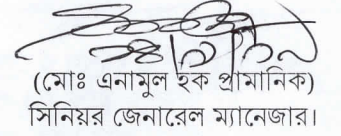 (মোঃ এনামুল হক প্রামানিক)
সিনিয়র জেনারেল ম্যানেজার।